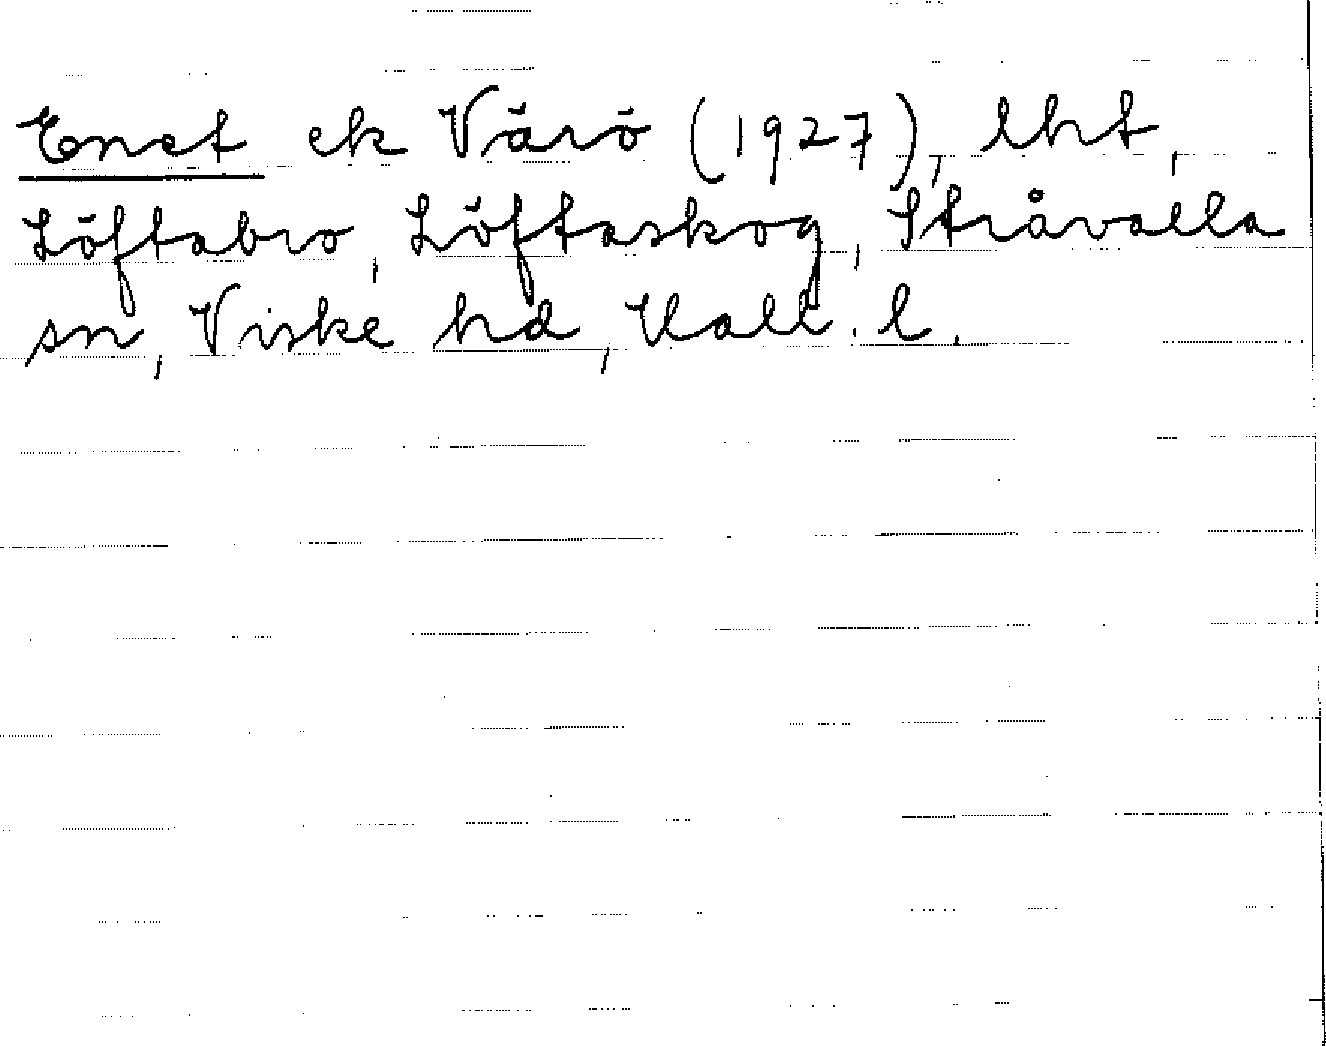 Enet ek Värö (1927), lht,
Löftabro, Löftaskog, Stråvalla
sn, Viske hd, Hall. l.